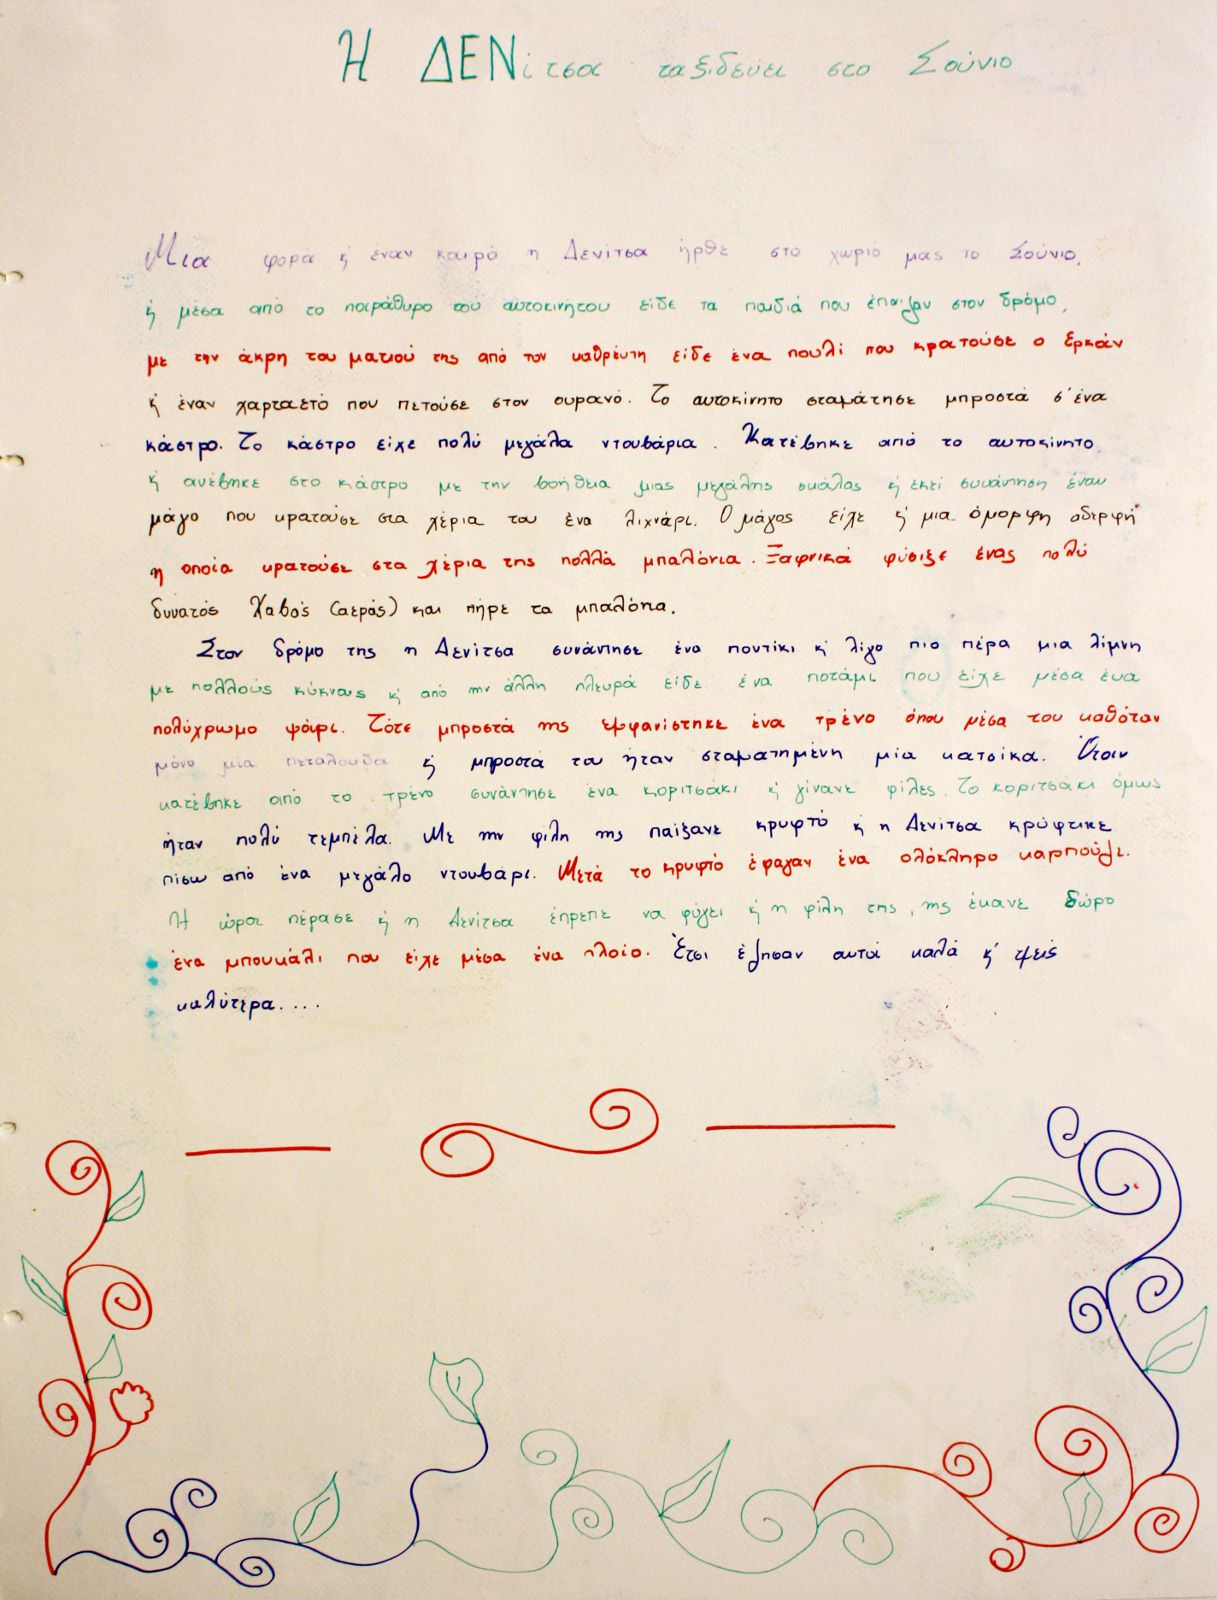 Η ΔΕΝίτσα ταξιδεύει στο Σούνιο
Μια φορά ή έναν καιρό η Δενίτσα ήρθε στο χωριό μας το Σούνιο,
ή μέσα από το παράθυρο του αυτοκινήτου είδε τα παιδιά που έπαιζαν στον δρόμο,
με την άκρη του ματιού της από τον καθρέυτη είδε ένα πουλί που κρατούσε ο Ερκάν
ή έναν χαρταετό που πετούσε στον ουρανό. Το αυτοκίνητο σταμάτησε μπροστά σ'ένα
κάστρο. Το κάστρο είχε πολύ μεγάλα ντουβάρια. Κατέβηκε από το αυτοκίνητο
ή ανέβηκε στο κάστρο με την βοήθεια μιας μεγάλης σκάλας ή εκεί συνάντηση έναν
μάγο που κρατούσε στα χέρια του ένα λιχνάρι. Ο μάγος είχε ή μια όμορφη αδερφή
η οποία κρατούσε στα χέρια της πολλά μπαλόνια. Ξαφνικά φύσιξε ένας πολύ
δυνατός Χαβάς (αεράς) και πήρε τα μπαλόνια.
Στον δρόμο της η Δενίτσα συνάντησε ένα ποντίκι ή λίγο πιο πέρα μια λίμνη
με πολλούς κύκνους ή από την άλλη πλευρά είδε ένα ποτάμι που είχε μέσα ένα
πολύχρωμο ψάρι. Τότε μπροστά της εμφανίστηκε ένα τρένο όπου μέσα του καθόταν
μόνο μία πεταλούδα ή μπροστά του ήταν σταματημένη μία κατσίκα. Όταν
κατέβηκε από το τρένο συνάντησε ένα κοριτσάκι ή γίνανε φίλες. Το κοριτσάκι όμως
ήταν πολύ τεμπέλα. Με την φίλη της παίξανε κρυφτό ή η Δενίτσα κρύφτικε
πίσω από ένα μεγάλο ντουβάρι. Μετά το κρυφτό έφαγαν ένα ολόκληρο καρπούζι.
Η ώρα πέρασε ή η Δενίτσα έπρεπε να φύγει ή η φίλη της, της έκανε δώρο
ένα μπουκάλι που είχε μέσα ένα πλοίο. Έτσι έζησαν αυτοί καλά ή εμείς
καλύτερα....